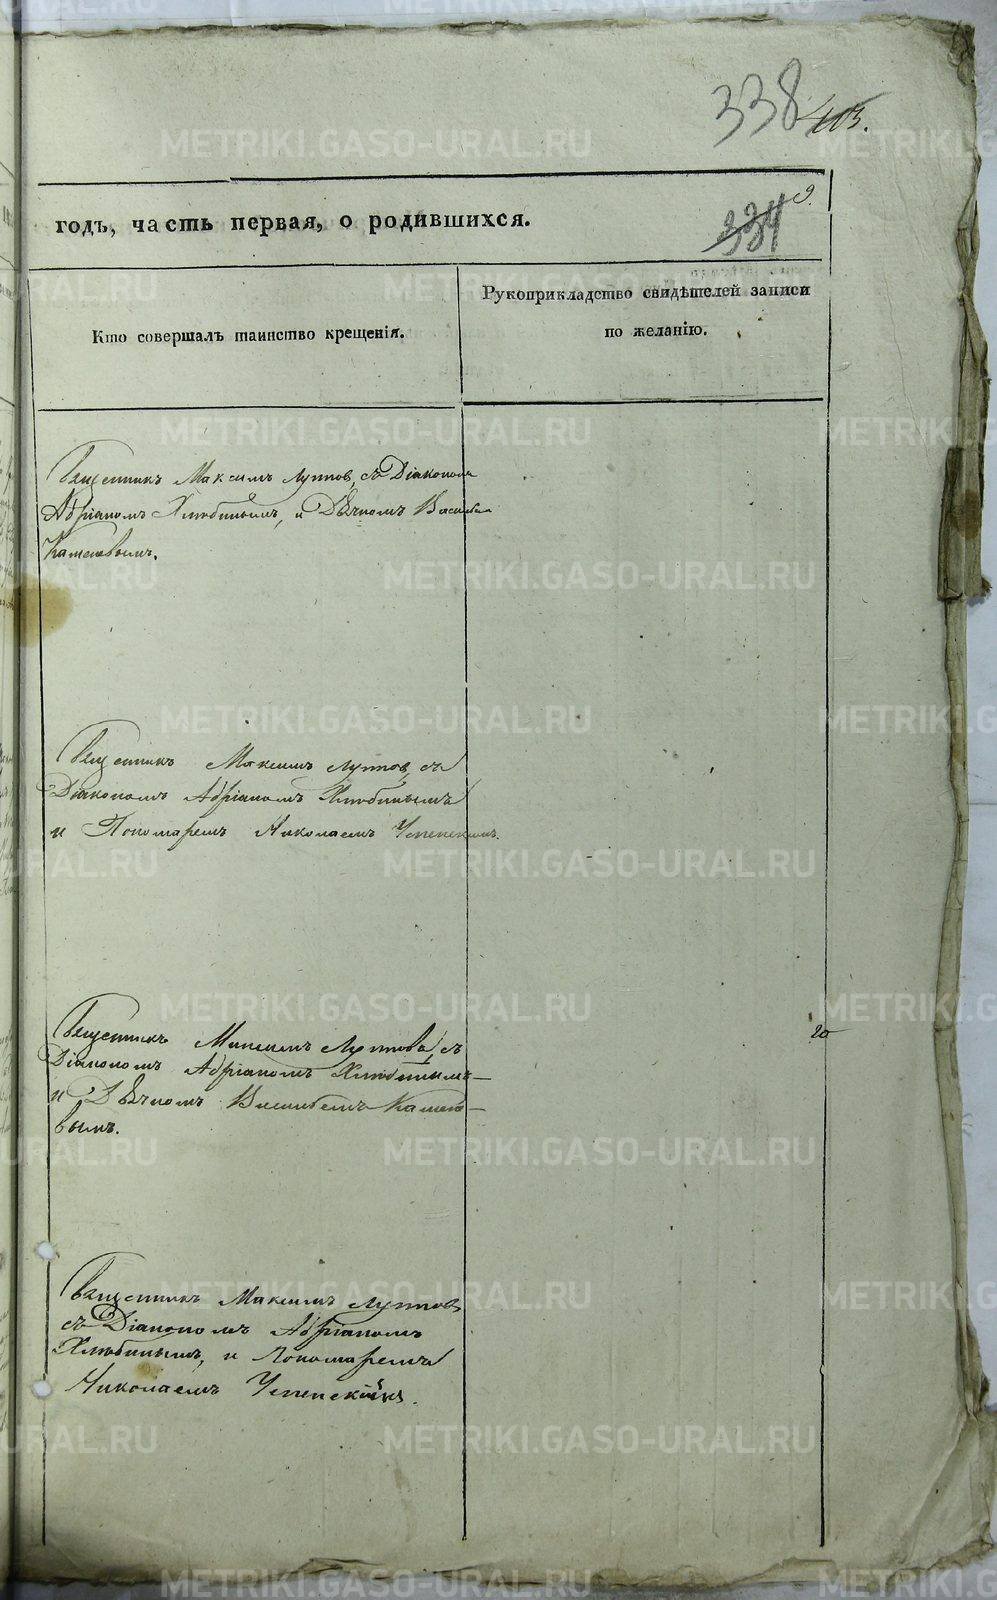 338
403.
9.
334
годъ, часть первая, о родившихся.
Кто совершалъ таинство крещенія.
Рукоприкладство свидѣтелей записи
по желанію.
Священникъ Максимъ Лупповъ, съ Діакономъ
Адріаномъ Хлюбинымъ, и Дьячкомъ Василье
Кашевымъ.
Священникъ Максимъ Лупповъ, съ
Діакономъ Адріаномъ Хлюбинымъ
и Пономаремъ Николаемъ Успенскимъ.
Священникъ Максимъ Лупповъ, съ
Діакономъ Адріаномъ Хлюбинымъ
и Дьячкомъ Васильемъ
вымъ.
20
Священникъ Максимъ Лупповъ
съ Діакономъ Адріаномъ
Хлюбинымъ, и Пономаремъ
Николаемъ Успенскимъ.
METRIKI.GASO-URAL.RU